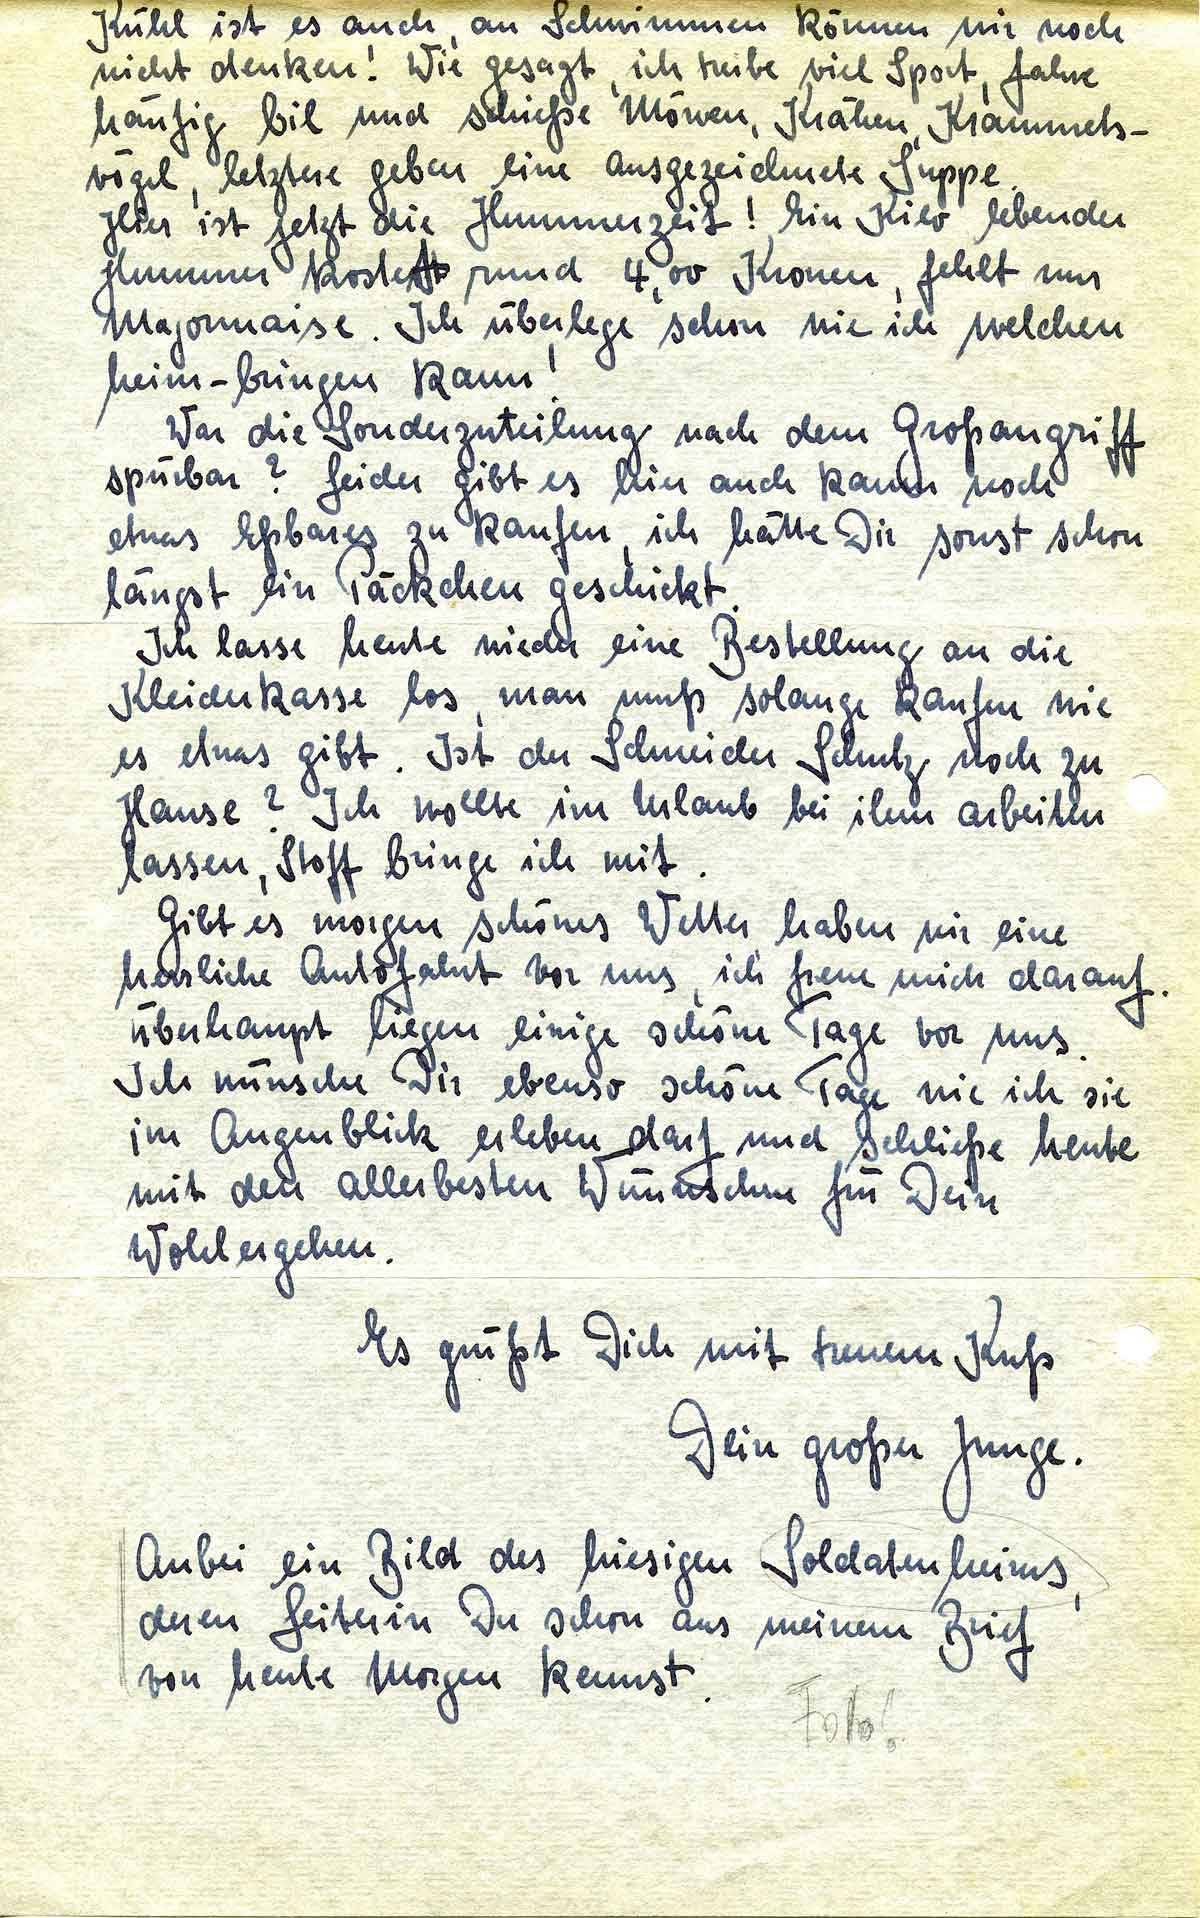 Kühl ist es auch, an Schwimmen können wir noch
nicht denken! Wie gesagt, ich treibe viel Sport, fahre
häufig bil und schieße Möwen, Krähen, Krammets-
vögel, letztere geben eine ausgezeichnete Suppe.
Hier ist jetzt die Hummerzeit! Ein Kilo lebender
Hummer kostet rund 4,00 Kronen, fehlt nur
Majonnaise. Ich überlege schon wie ich welchen
heim-bringen kann!
War die Sonderzuteilung nach dem Großangriff
spürbar? Leider gibt es hier auch kaum noch
etwas Eßbares zu kaufen, ich hätte Dir sonst schon
längst ein Päckchen geschickt.
Ich lasse heute wieder eine Bestellung an die
Kleiderkasse los, man muß solange kaufen wie
es etwas gibt. Ist der Schneider Schutz noch zu
Hause? Ich wollte im Urlaub bei ihm arbeiten
lassen, Stoff bringe ich mit.
Gibt es morgen schönes Wetter, haben wir eine
herrliche Autofahrt vor uns, ich freue mich darauf.
Überhaupt liegen einige schöne Tage vor uns.
Ich wünsche Dir ebenso schöne Tage wie ich sie
im Augenblick erleben darf und schließe heute
mit den allerbesten Wünschen für Dein
Wohlergehen.
Es grüßt Dich mit treuem Kuß
Dein großer Junge.
Anbei ein Bild des hiesigen Soldatenheims,
deren Leiterin Du schon aus meinem Brief
von heute Morgen kennst.
Foto!